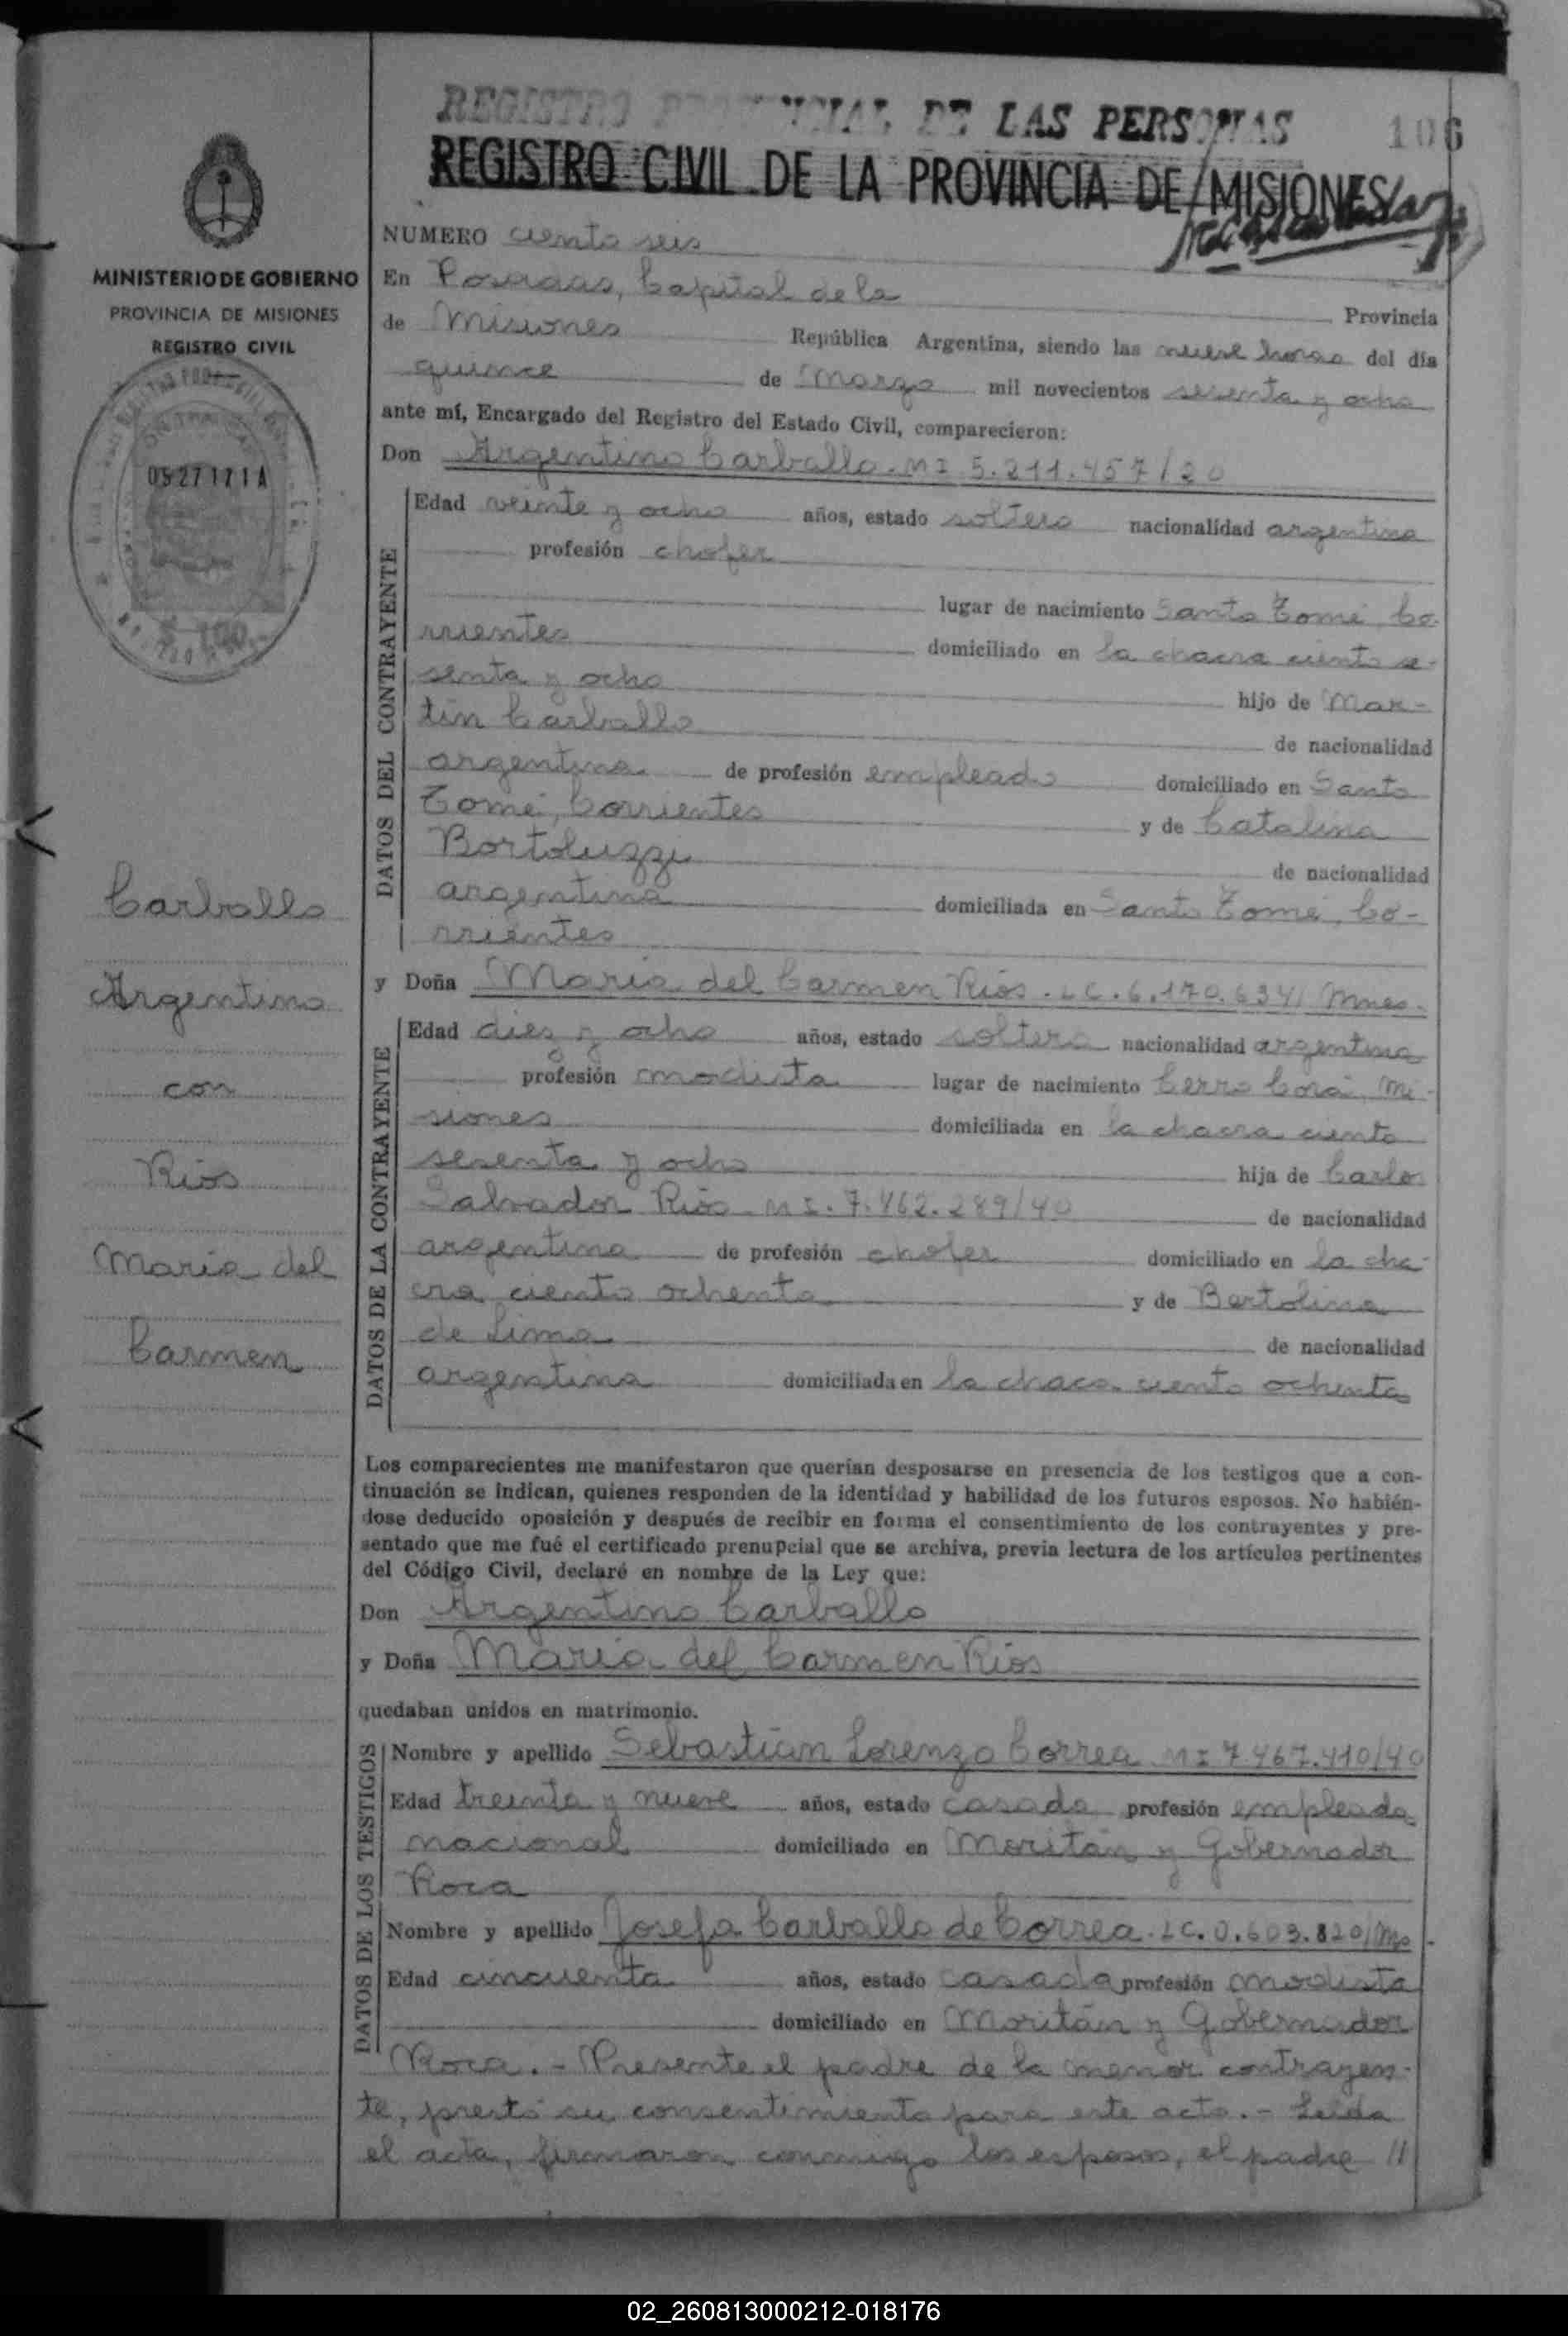 REGISTRO PROVINCIAL DE LAS PERSONAS
106
REGISTRO CIVIL DE LA PROVINCIA DE MISIONES
MINISTERIO DE GOBIERNO
PROVINCIA DE MISIONES
REGISTRO CIVIL
0527171A
$ 100
Carballo
Argentino
con
Rios
Maria del
Carmen
NUMERO ciento seis
En Posadas, Capital de la Provincia
de Misiones República Argentina, siendo las nueve horas del día
quince de Marzo mil novecientos sesenta y ocho
ante mí, Encargado del Registro del Estado Civil, comparecieron:
Don Argentino Carballo. MI 5.211.457/20
DATOS DEL CONTRAYENTE
Edad veinte y ocho años, estado soltero nacionalidad argentina
profesión chofer
lugar de nacimiento Santo Tomé, Co-
rrientes domiciliado en la chacra ciento se-
senta y ocho hijo de Mar-
tin Carballo de nacionalidad
argentina de profesión empleado domiciliado en Santo
Tomé, Corrientes y de Catalina
Bortoluzzi de nacionalidad
argentina domiciliada en Santo Tomé, Co-
rrientes
y Doña Maria del Carmen Rios. LC. 6.170.634/ Mnes.
DATOS DE LA CONTRAYENTE
Edad dies y ocho años, estado soltera nacionalidad argentina
profesión modista lugar de nacimiento Cerro Corá, Mi-
siones domiciliada en la chacra ciento
sesenta y ocho hija de Carlos
Salvador Rios. MI. 7.462.289/40 de nacionalidad
argentina de profesión chofer domiciliado en la cha-
cra ciento ochenta y de Bertolina
de Lima de nacionalidad
argentina domiciliada en la chaca ciento ochenta
Los comparecientes me manifestaron que querían desposarse en presencia de los testigos que a con-
tinuación se indican, quienes responden de la identidad y habilidad de los futuros esposos. No habién-
dose deducido oposición y después de recibir en forma el consentimiento de los contrayentes y pre-
sentado que me fué el certificado prenupcial que se archiva, previa lectura de los artículos pertinentes
del Código Civil, declaré en nombre de la Ley que:
Don Argentino Carballo
y Doña Maria del Carmen Rios
quedaban unidos en matrimonio.
DATOS DE LOS TESTIGOS
Nombre y apellido Sebastián Lorenzo Correa MI 7.467.410/40
Edad treinta y nueve años, estado casado profesión empleado
nacional domiciliado en Moritán y Gobernador
Roca
Nombre y apellido Josefa Carballo de Correa. LC. 0.603.820/Mo.
Edad cincuenta años, estado casada profesión modista
domiciliado en Moritán y Gobernador
Roca. - Presente el padre de la menor contrayen-
te, prestó su consentimiento para este acto. - Leída
el acta, firmaron conmigo los esposos, el padre //
02_260813000212-018176